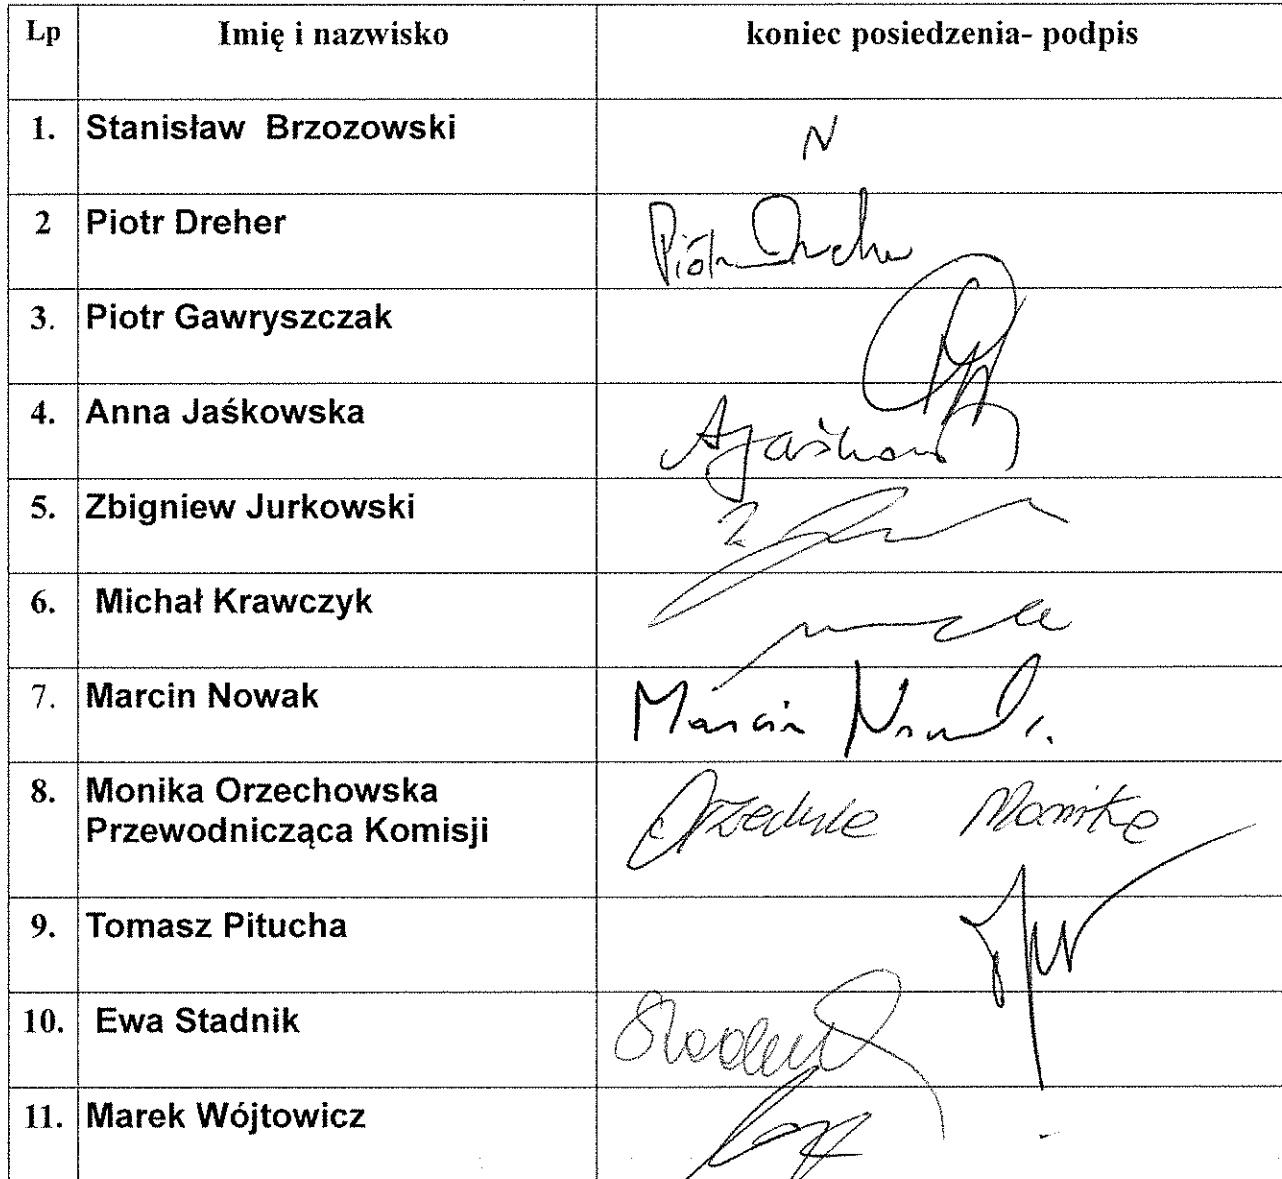 Lp Imię i nazwisko koniec posiedzenia- podpis
1. Stanisław Brzozowski N
2 Piotr Dreher Piotr Dreher
3. Piotr Gawryszczak
4. Anna Jaśkowska AJaśkows
5. Zbigniew Jurkowski
6. Michał Krawczyk
7. Marcin Nowak Marcin Nowak
8. Monika Orzechowska
Przewodnicząca Komisji
9. Tomasz Pitucha
10. Ewa Stadnik Stadnik
11. Marek Wójtowicz